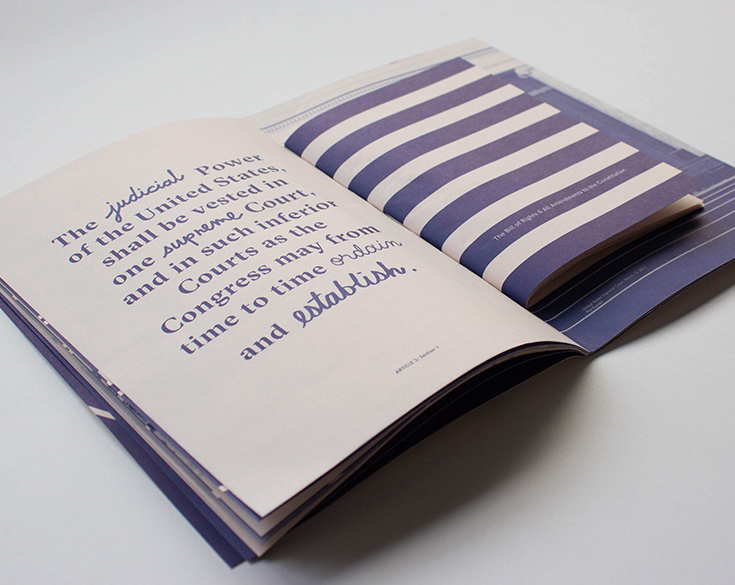 The judicial Power
of the United States,
shall be vested in
one supreme Court,
and in such inferior
Courts as the
Congress may from
time to time ordain
and establish.
ARTICLE 3: Section 1
The Bill of Rights & All Amendments to the Constitution